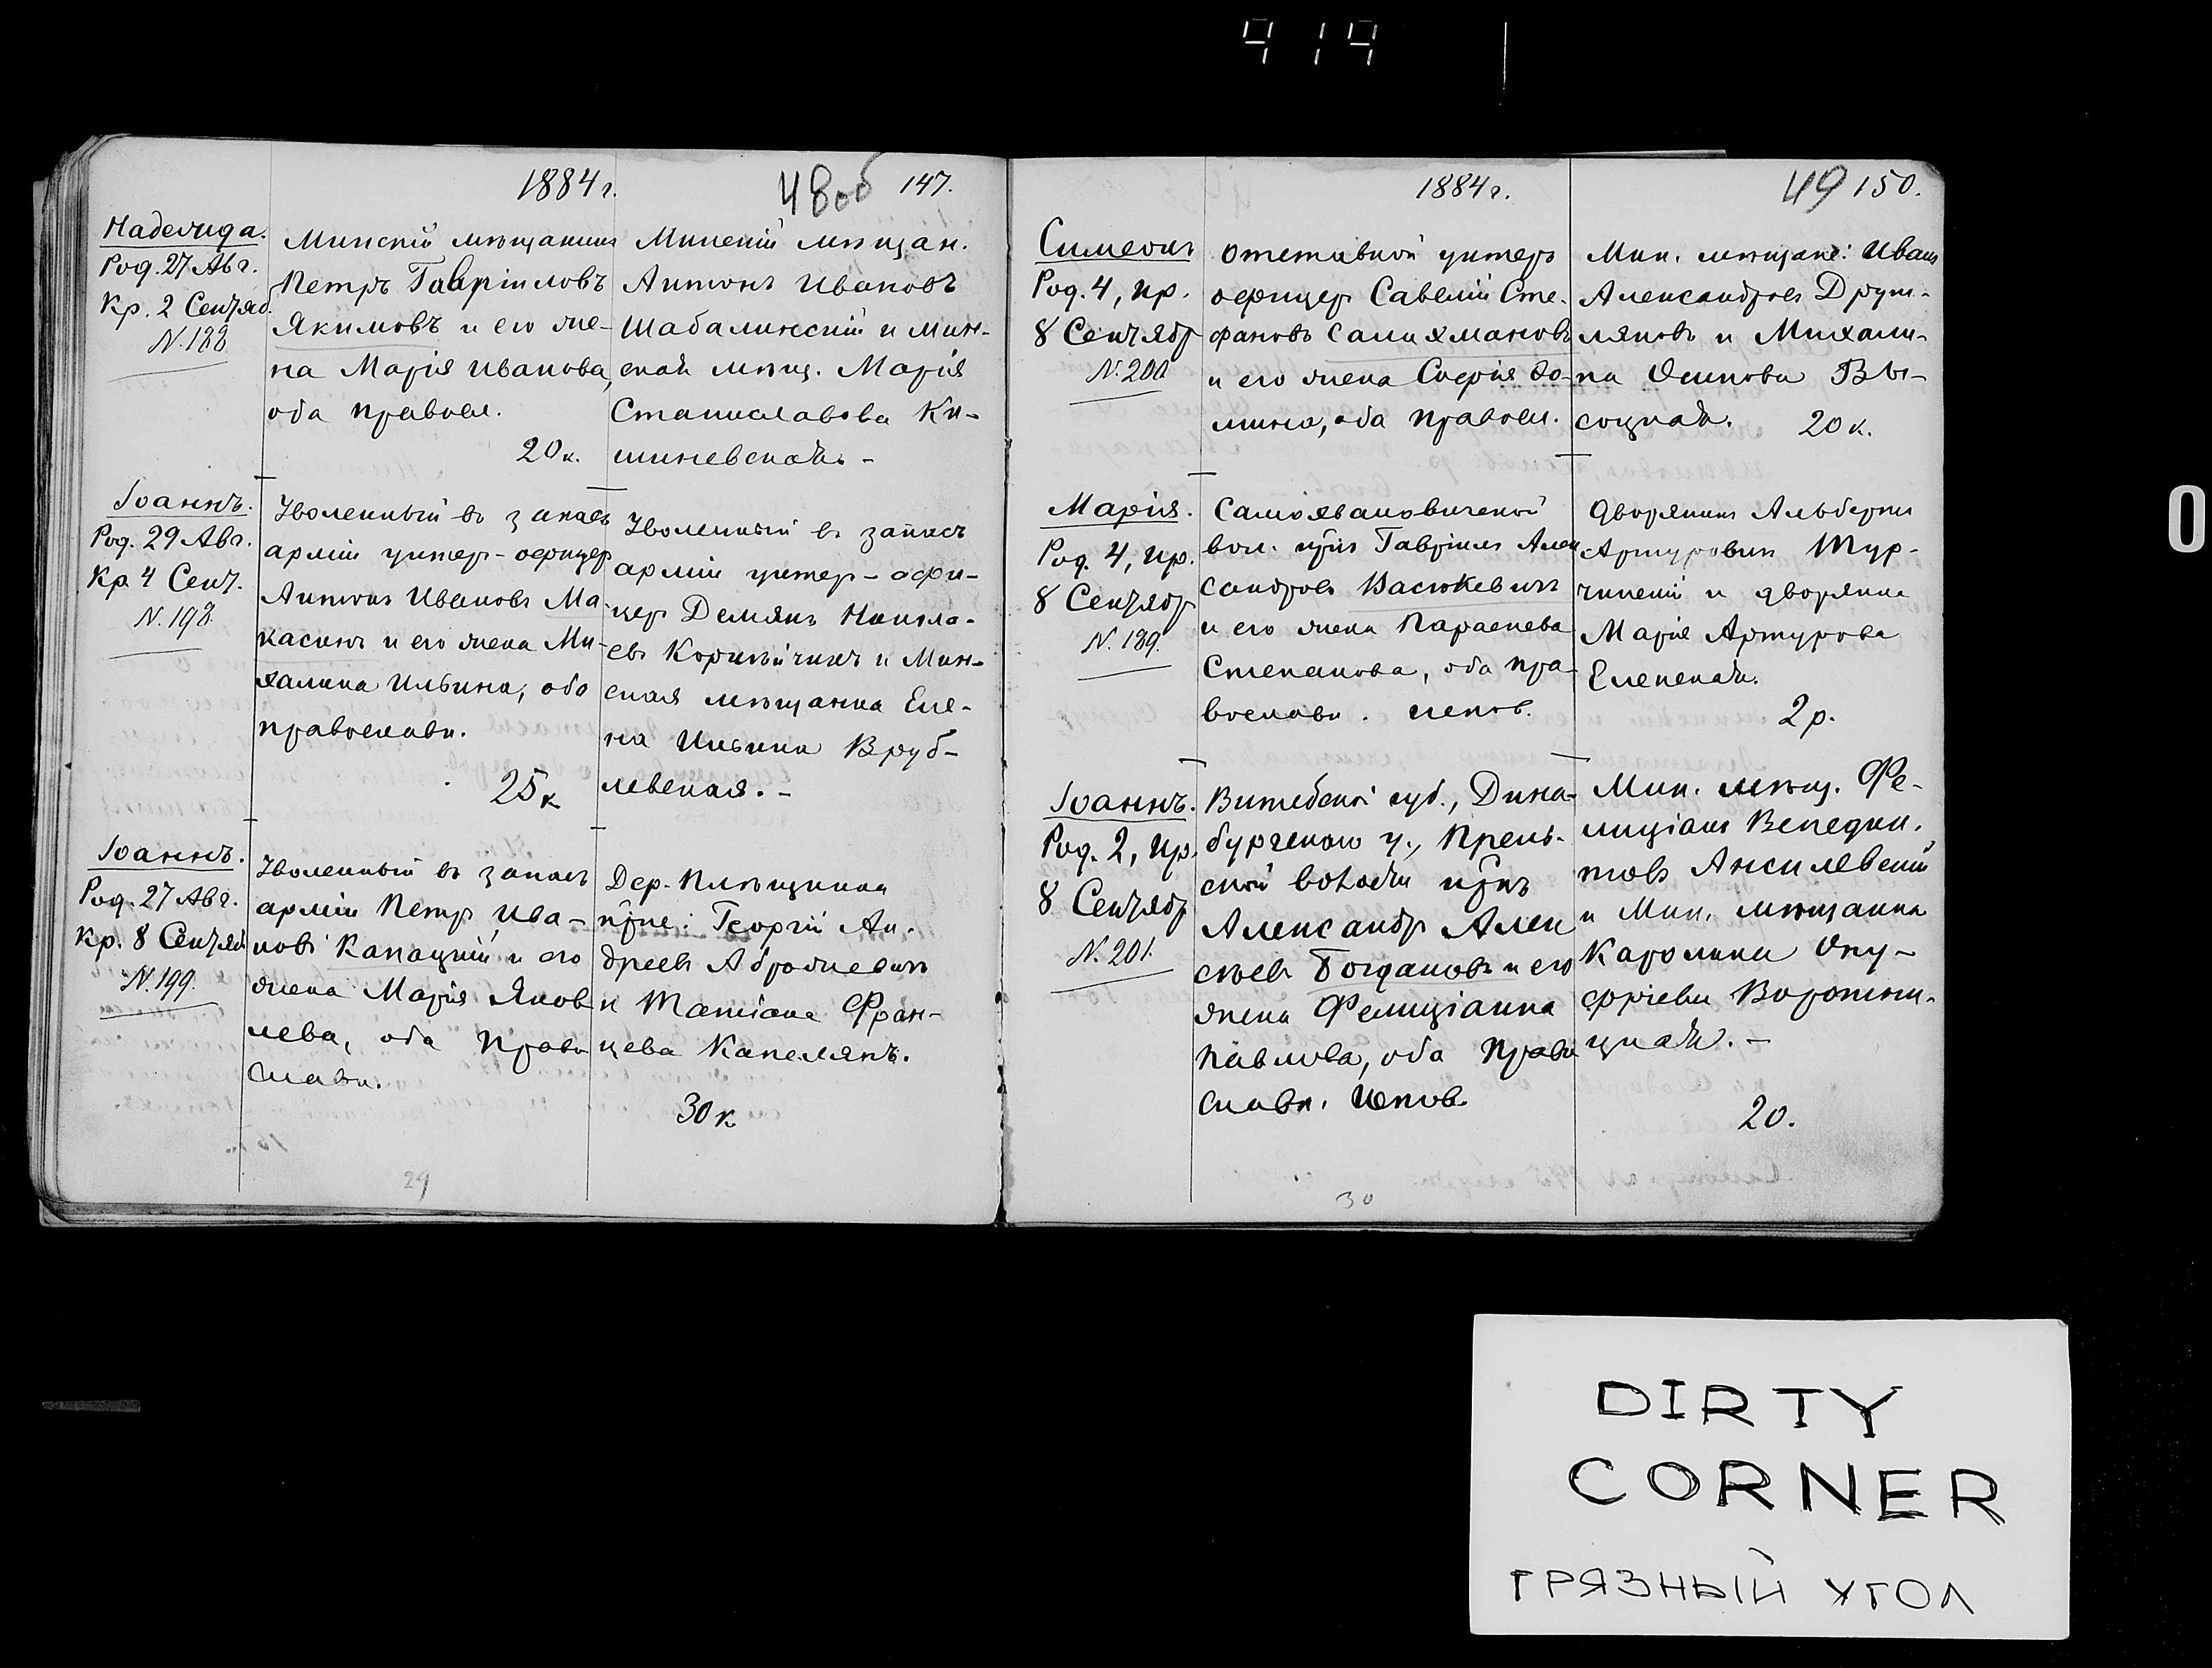 414
1884 г.
48об
147.
Надежда.
Род. 27 Авг.
Кр. 2 Сентяб.
N. 188
Минскій мѣщанинъ
Петръ Гавріиловъ
Якимовъ и его же-
на Марія Иванова,
оба правосл.
20 к.
Минскій мѣщан.
Антонъ Ивановъ
Шабалинскій и мин-
ская мѣщ. Марія
Станиславова Ки-
шиневская. -
Іоаннъ.
Род. 29 Авг.
Кр. 4 Сент.
N. 198.
Уволенный въ запасъ
арміи унтер-офицер
Антонъ Ивановъ Ма-
касинъ и его жена Ми-
халина Ильина, оба
православн.
25 к
Уволенный въ запасъ
арміи унтер-офи-
цер Демянъ Никола-
евъ и Мин-
ская мѣщанка Еле-
на Ильина Вруб-
левская. -
Іоаннъ.
Род. 27 Авг.
Кр. 8 Сентяб
N. 199.
Уволенный въ запасъ
арміи Петр Ива-
новъ Капацкій и его
жена Марія Яков
лева, оба право
славн.
Дер.
крне: Георгій Ан-
дреевъ Абрамевич
и Татіана Фран-
цева Капелянъ.
30 к
29
1884 г.
49
150.
Симеонъ
Род. 4, кр.
8 Сентябр
N. 200
Отставной унтеръ
офицер Савелій Сте-
фановъ Салихмановъ
и его жена Софія Фо-
мина, оба правосл.
Мин. мѣщане: Иванъ
Александровъ Друт-
ляновъ и Михали-
на Осипова Вы-
соцкая. 20 к.
Марія.
Род. 4, кр.
8 Сентябр
N. 189.
Самохваловичской
вол. крнъ Гавріилъ Алек
сандровъ Васюкевичъ
и его жена Параскева
Степанова, оба пра-
вославн. испов.
Дворянинъ Альбертъ
Артуровичъ Тур-
чинскій и дворянка
Марія Артурова
Еленская.
2 р.
Іоаннъ.
Род. 2, кр.
8 Сентябр
N. 201.
Витебской губ., Дина-
бургскаго у., Прель-
ской волости крнъ
Александр Алек
сѣевъ Богдановъ и его
жена Фелиціанна
Павлова, оба право
славн. испов.
Мин. мѣщ. Фе-
лиціанъ Венедик-
товъ Ансилевскій
и Мин. мѣщанка
Каролина Ону-
фріева Воротни-
цкая. -
20.
30
0
DIRTY
CORNER
ГРЯЗНЫЙ УГОЛ